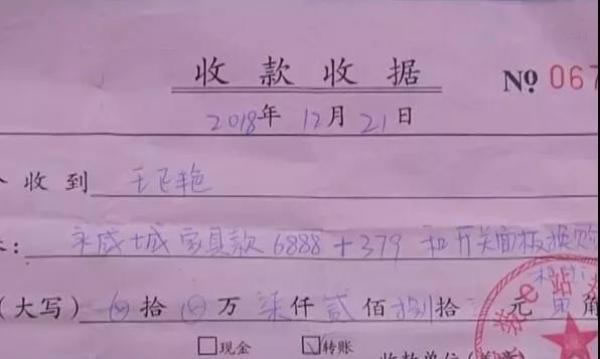 收款收据 № 067
2018年 12月 21日
收到 王飞艳
: 永威城 家具款 6888+379 和开关面板换购
(大写) ⊗拾⊗万柒仟贰佰捌拾 元 角
□现金 ☑转账 收款单位
e站